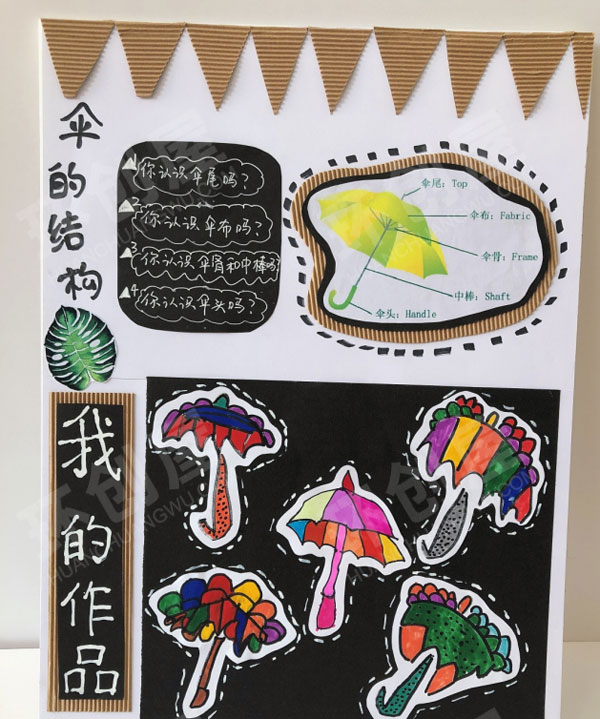 伞的结构
1 你认识伞尾吗?
2 你认识伞布吗?
3 你认识伞骨和中棒吗?
4 你认识伞头吗?
伞尾: Top
伞布: Fabric
伞骨: Frame
中棒: Shaft
伞头: Handle
我的作品
环创屋
HUANCHUANGWU.COM